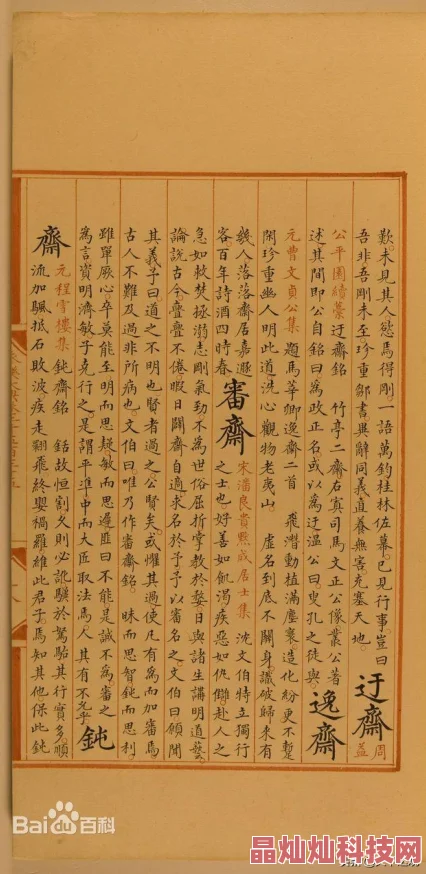 歎未見其人慾焉得剛一語萬鈞桂林佐幕已見行事豈曰
吾非吾剛未至珍重鄒書與辭同義直養無害充塞天地 迂齋 周益
公平園續藁迂齋銘 竹亭二齋右寘司馬文正公像叢公著
述其間即公自銘曰為政正名或以為迂溫公曰叟孔之徒與 逸齋
元曹文貞公集 題馬華卿逸齋二首 飛潛動植滿壓寰造化紛更不暫
閑珍重幽人明此道洗心觀物老夷山 虛名到底不關身識破歸來有
幾人落落齋居嘉遯
客百年詩酒四時春 審齋 宋潘良貴默成居士集 沈文伯特立獨行
之士也好善如飢渴疾惡如仇讎赴人之
急如救焚拯溺志剛氣勁不為世俗屈折掌教於婺日與諸生講明道藝
論說古今亹亹不倦暇日闢齋自適求名於予予以審名之文伯曰願聞
其義予曰道之不明也賢者過之公賢矣或懼其過使凡有為而加審焉
古人不難及過非所病也文伯曰唯乃作審齋銘 昧而思智鈍而思利
雖單厥心卒莫能至明而思疑敏而思違匪曰不能是誠不為審之
為言資明濟敏子堯行之是謂平準中而大匠取法焉人其有不允乎 鈍
齋 元程雪樓集 鈍齋銘 銛故恒割久則必訛驥於駑駘其行實多順
流加颿抵石敗波疾走翾飛終嬰禍羅維此君子焉知其他保此鈍
Bai 百科
晶灿灿科技网